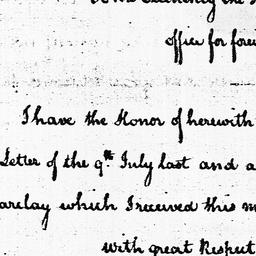 the
office for
I have the Honor of herewith
Letter of the 9th July last and a
arclay which I received this m
with great Respect